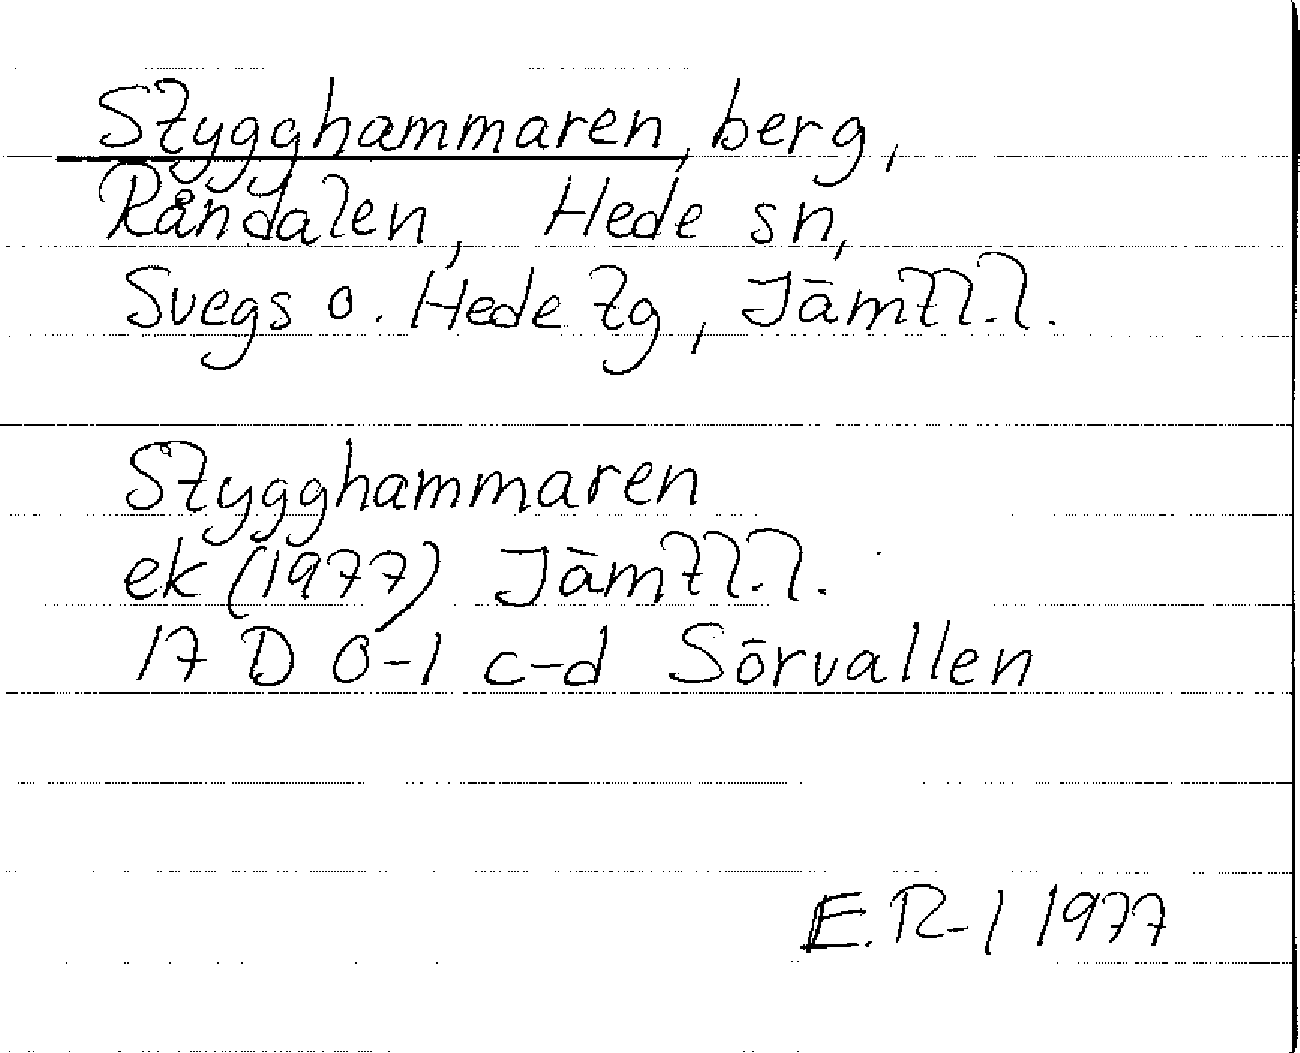 Stygghammaren, berg,
Råndalen, Hede sn,
Svegs o. Hede tg, Jämtl.l.
Stygghammaren
ek (1977) Jämtl.l.
17 D 0-1 c-d Sörvallen
E.R-l 1977